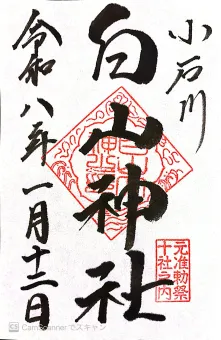 小石川
白山神社
令和八年一月十二日
元准勅祭
十社之内
CamScanner でスキャン